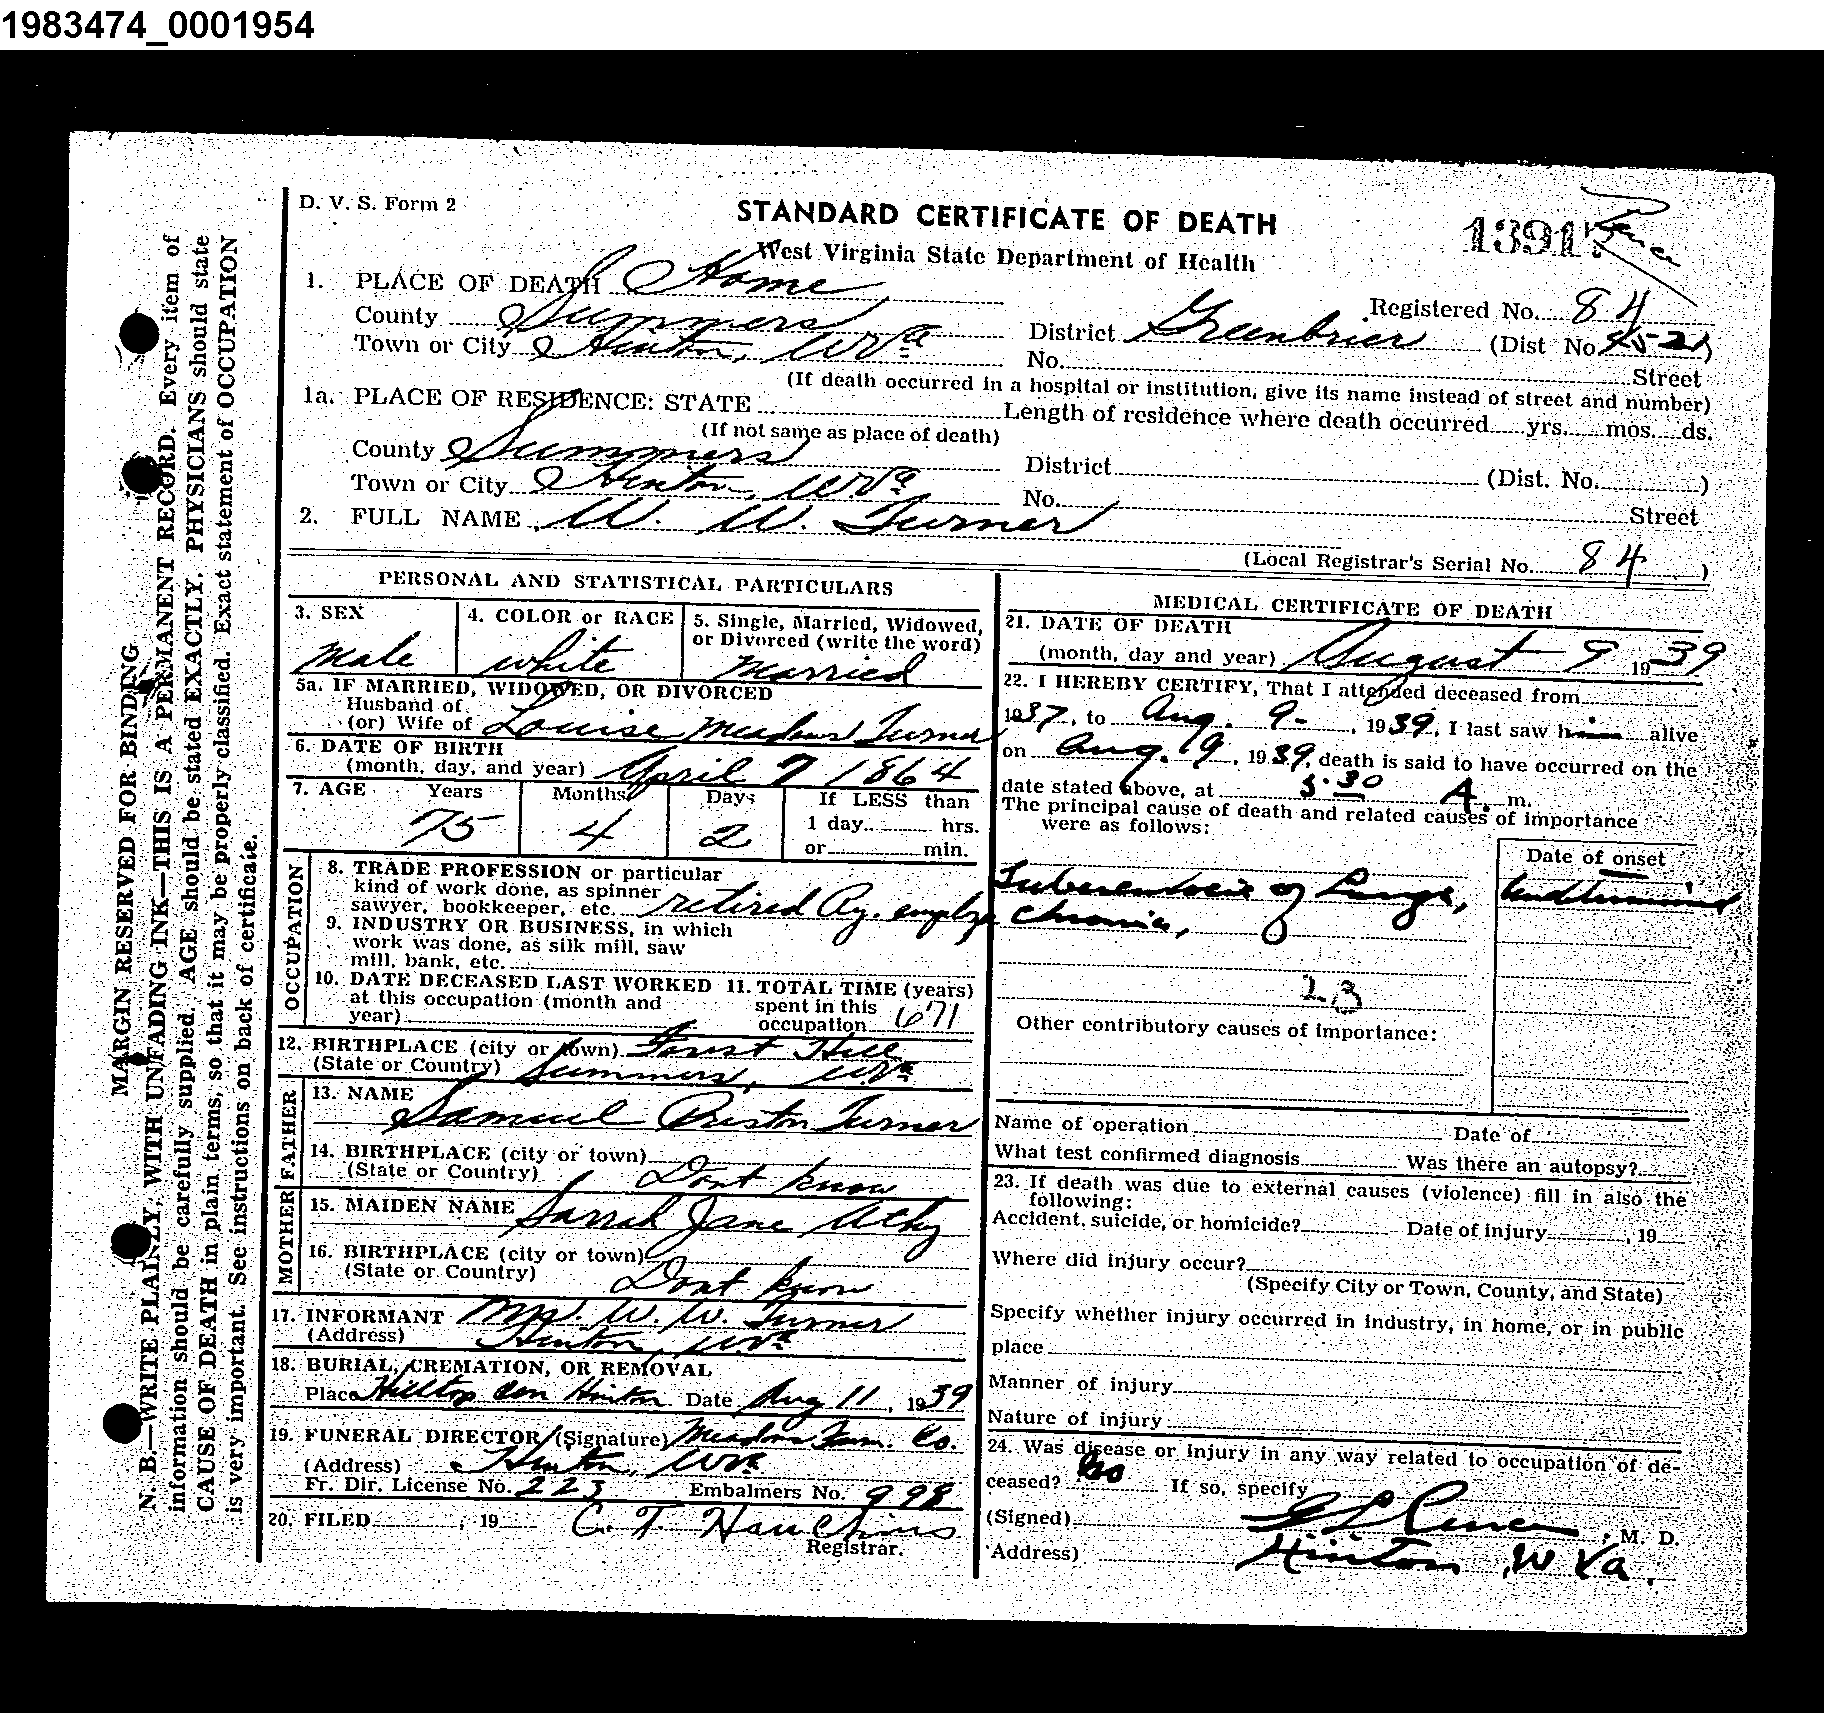 1983474_0001954
D. V. S. Form 2
STANDARD CERTIFICATE OF DEATH
West Virginia State Department of Health
1391
1. PLACE OF DEATH Home
Registered No. 84
County Summers District Greenbrier (Dist No.
Town or City Hinton, W Va No. Street
(If death occurred in a hospital or institution, give its name instead of street and number)
1a. PLACE OF RESIDENCE: STATE Length of residence where death occurred yrs. mos. ds.
(If not same as place of death)
County Summers District (Dist. No. )
Town or City Hinton, W Va No. Street
2. FULL NAME W. W. Turner
(Local Registrar's Serial No. 84 )
PERSONAL AND STATISTICAL PARTICULARS
3. SEX
Male
4. COLOR or RACE
white
5. Single, Married, Widowed,
or Divorced (write the word)
Married
5a. IF MARRIED, WIDOWED, OR DIVORCED
Husband of
(or) Wife of Louise Meadows Turner
6. DATE OF BIRTH
(month, day, and year) April 7 1864
7. AGE Years Months Days If LESS than
1 day hrs.
75 4 2
or min.
OCCUPATION
8. TRADE PROFESSION or particular
kind of work done, as spinner
sawyer, bookkeeper, etc. retired Ry. employe
9. INDUSTRY OR BUSINESS, in which
work was done, as silk mill, saw
mill, bank, etc.
10. DATE DECEASED LAST WORKED
at this occupation (month and
year)
11. TOTAL TIME (years)
spent in this
occupation 671
12. BIRTHPLACE (city or town) Forest Hill
(State or Country) Summers, W Va
FATHER
13. NAME
Samuel Preston Turner
14. BIRTHPLACE (city or town)
(State or Country) Dont know
MOTHER
15. MAIDEN NAME Sarrah Jane Athy
16. BIRTHPLACE (city or town)
(State or Country) Dont know
17. INFORMANT Mrs. W. W. Turner
(Address) Hinton, W Va
18. BURIAL, CREMATION, OR REMOVAL
Place Hilltop Cem Hinton Date Aug 11, 1939
19. FUNERAL DIRECTOR (Signature) Meadows Furn. Co.
(Address) Hinton, W Va
Fr. Dir. License No. 223 Embalmers No. 998
20. FILED , 19
Registrar.
MEDICAL CERTIFICATE OF DEATH
21. DATE OF DEATH
(month, day and year) August 9 1939
22. I HEREBY CERTIFY, That I attended deceased from
1937, to Aug. 9-, 1939, I last saw him alive
on Aug. 9, 1939, death is said to have occurred on the
date stated above, at 5:30 A. m.
The principal cause of death and related causes of importance
were as follows:
Date of onset
Tuberculosis of Lungs,
Chronic,
23
Other contributory causes of importance:
Name of operation Date of
What test confirmed diagnosis Was there an autopsy?
23. If death was due to external causes (violence) fill in also the
following:
Accident, suicide, or homicide? Date of injury , 19
Where did injury occur?
(Specify City or Town, County, and State)
Specify whether injury occurred in industry, in home, or in public
place
Manner of injury
Nature of injury
24. Was disease or injury in any way related to occupation of de-
ceased? No If so, specify
(Signed) , M. D.
Address) Hinton, W Va.
MARGIN RESERVED FOR BINDING
N. B.—WRITE PLAINLY, WITH UNFADING INK—THIS IS A PERMANENT RECORD. Every item of
information should be carefully supplied. AGE should be stated EXACTLY. PHYSICIANS should state
CAUSE OF DEATH in plain terms, so that it may be properly classified. Exact statement of OCCUPATION
is very important. See instructions on back of certificate.